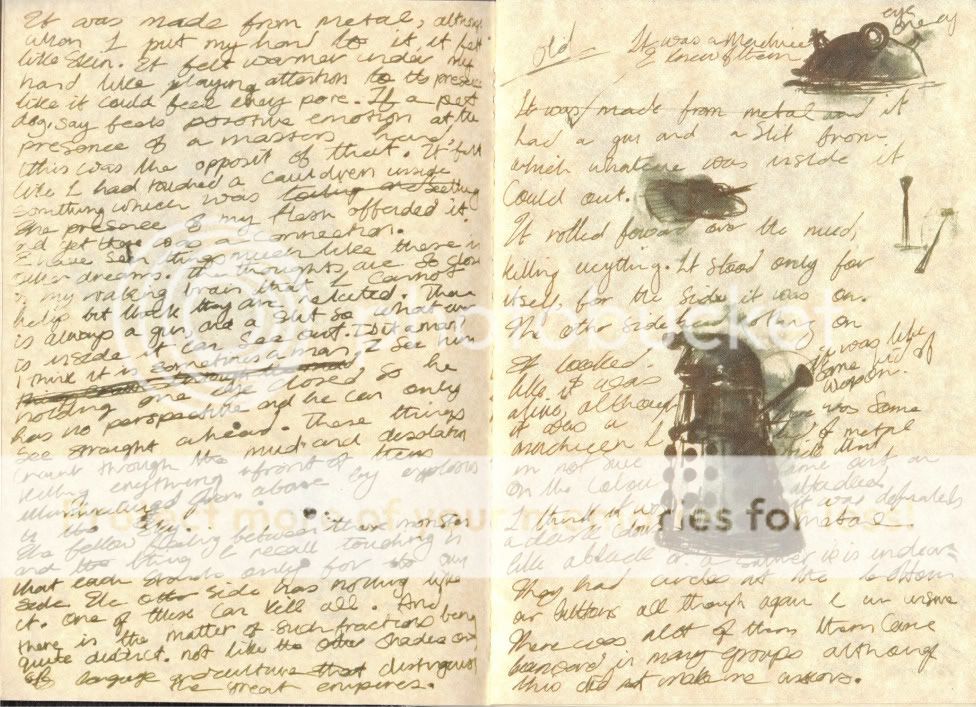 It was made from metal, although
when I put my hand to it, it felt
like skin. It felt warmer under my
hand like playing attention to its presence
like it could feel every pore. If a pet
dog, say feels possitive emotion at the
presence of a masters hand,
this was the opposit of that. It felt
like I had touched a cauldren inside
somthing which was seething
the presence of my flesh offended it.
and yet there was a connection.
I have seen things much like there in
other dreams. The thoughts are so slow
in my waking brain that I cannot
help but think they are related. There
is always a gun, and a slit so what ever
is inside it can see out. But a man?
I think it is sometimes a man, I see him
holding one eye closed so he
has no perspective and he can only
see straight ahead. These things
through the mud and desolation
killing enything infront of them
illuminated from above by explosions
in the sky.
the fellow feeling between these monsters
and the thing I recall touching is
that each stands only for its own
side. The other side has nothing like
it. One of these can kill all. And
there is the matter of such fractions being
quite distinct. not like the other shades
of language and culture that distinguish
the great empires.
old
It was a Machine
I knew of them
eye
one eye
It was made from metal and it
had a gun and a slit from
which whatever was inside it
Could out.
It rolled foward over the mud,
killing enything. It stood only for
itself, for the side it was on.
The other side had nothing on
it looked.
like it was
alive, although
it was a
machine I
im not sure
on the colour
I think it was
a dark
like a black or a silver is is unclear
it was like
some kind of
weapon.
there was some
of metal
that
came out an
attached
it was defenately
metal
They had circles at the bottom
or buttons all though again I am unsure
There was alot of them them came
in many groups although
this did not make me unsure.
photobucket
Protect more of your memories for less!